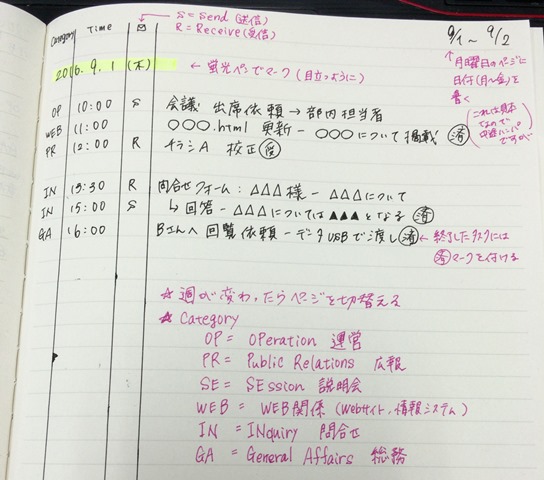 S = Send (送信)
R = Receive (受信)
Category Time ✉
9/1 ~ 9/2
↑月曜日のページに
日付(月~金)を
書く
(これは見本
なので
中途ハンパ
ですが)
2016.9.1 (木) ← 蛍光ペンでマーク (目立つように)
OP 10:00 S 会議 出席依頼 → 部内担当者
WEB 11:00 〇〇〇.html 更新 - 〇〇〇について掲載 済
PR 12:00 R チラシA 校正 受
IN 13:30 R 問合せフォーム : △△△様 - △△△について
IN 15:00 S ↳ 回答 - △△△については▲▲▲となる 済
GA 16:00 Bさんへ 回覧依頼 - データUSBで渡し 済 ← 終了したタスクには
済マークを付ける
☆ 週が変わったらページを切替える
☆ Category
OP = OPeration 運営
PR = Public Relations 広報
SE = SEssion 説明会
WEB = WEB関係 (Webサイト、情報システム)
IN = INquiry 問合せ
GA = General Affairs 総務